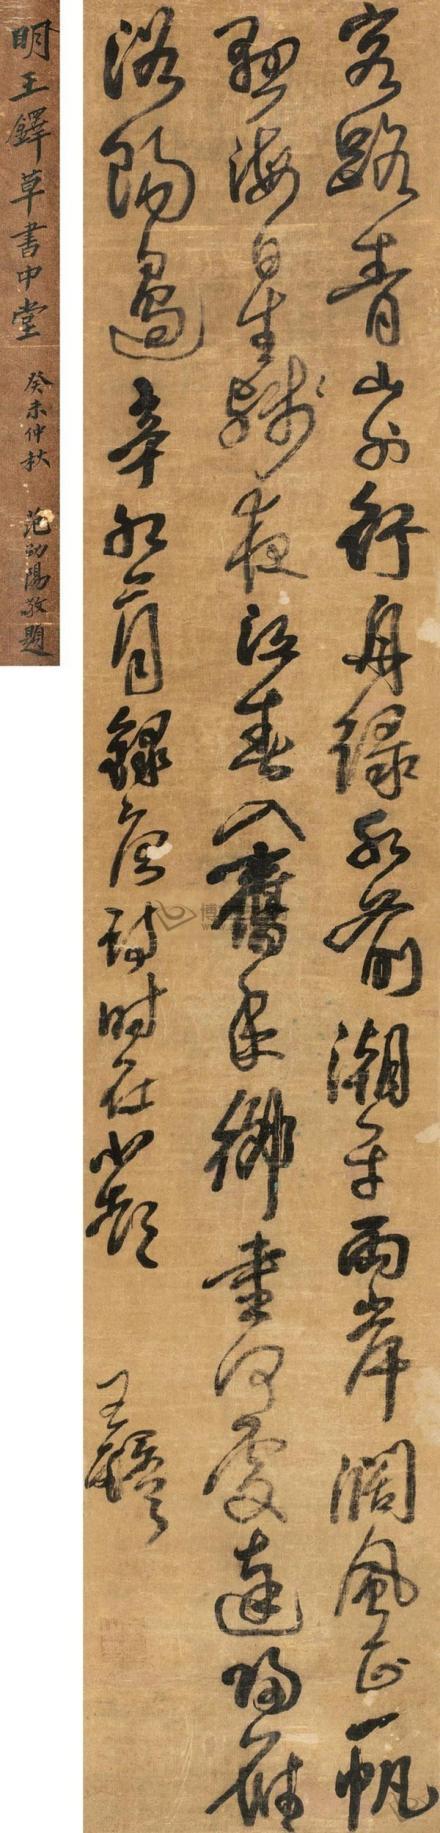 客路青山外行舟綠水前潮平兩岸闊風正一帆
懸海日生殘夜江春入舊年鄉書何處達歸雁
洛陽邊辛卯月錄唐詩時在小
王鐸
明王鐸草書中堂
癸未仲秋
范陽敬題
博